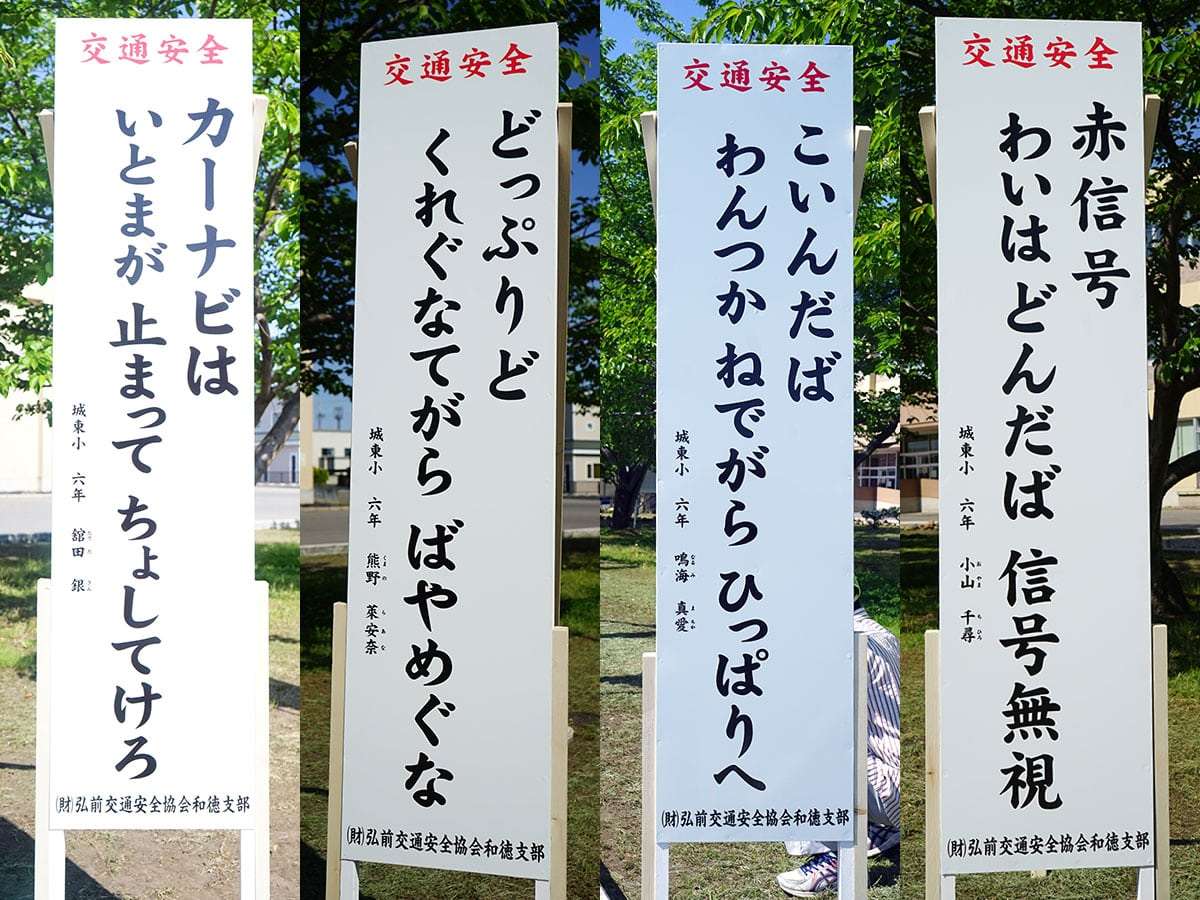 交通安全
カーナビは
いとまが 止まって ちょしてけろ
城東小 六年 舘田 銀
(財)弘前交通安全協会和徳支部
交通安全
どっぷりど
くれぐなてがら ばやめぐな
城東小 六年 熊野 萊安奈
くまの らあな
(財)弘前交通安全協会和徳支部
交通安全
こいんだば
わんつか ねでがら ひっぱりへ
城東小 六年 鳴海 真愛
なるみ
(財)弘前交通安全協会和徳支部
交通安全
赤信号
わいは どんだば 信号無視
城東小 六年 小山 千尋
おやま ちひろ
(財)弘前交通安全協会和徳支部